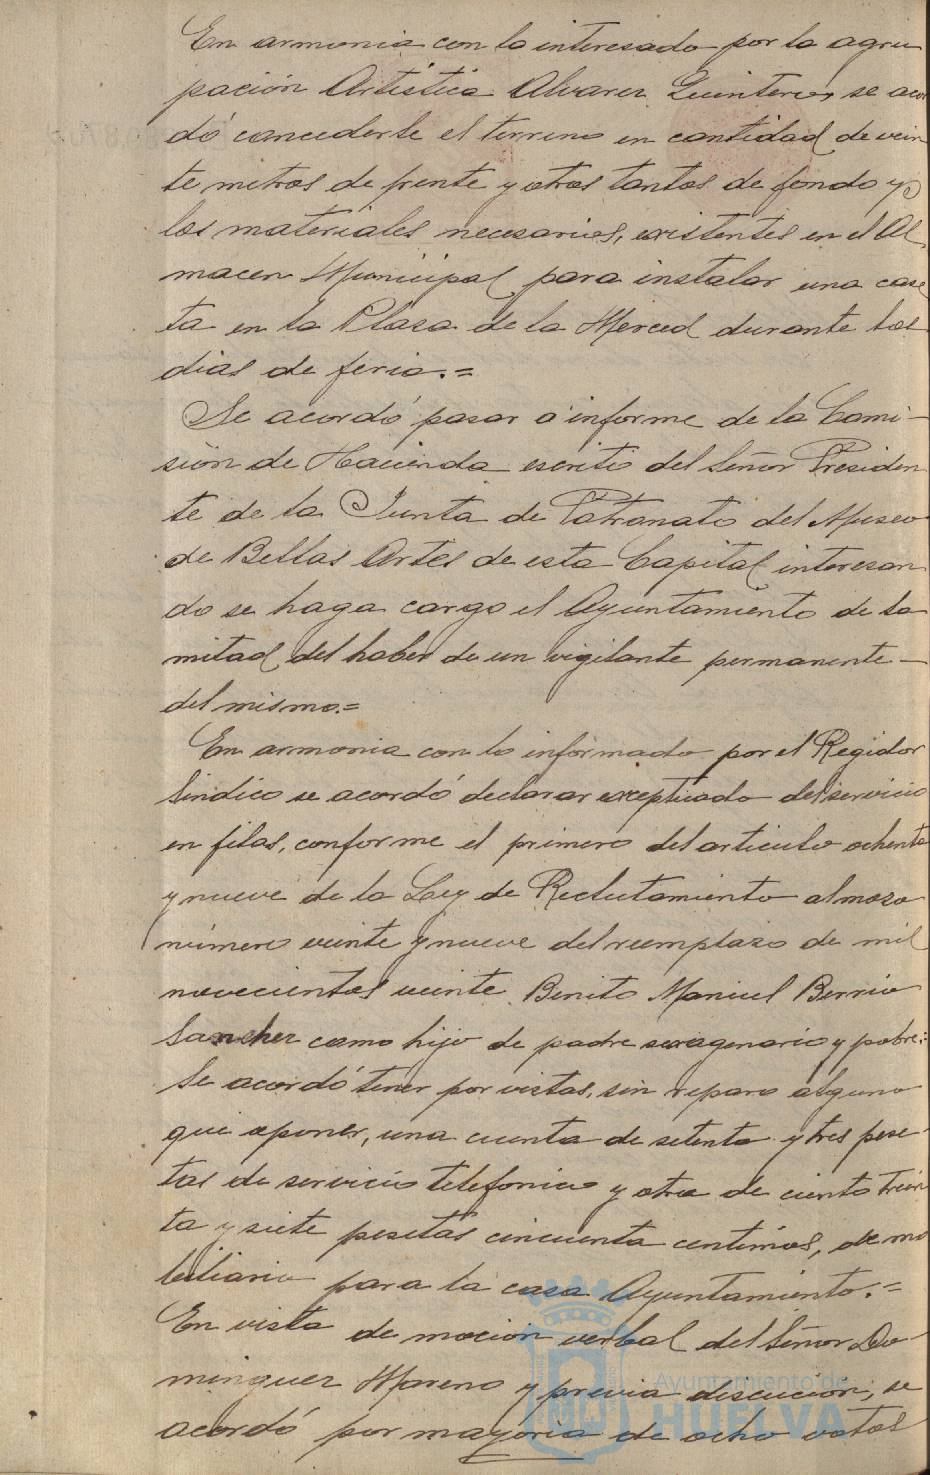 En armonia con lo interesado por la agru
pación Artística Alvarez Quintero, se acor
dó concederle el terreno en cantidad de vein
te metros de frente y otros tantos de fondo y
los materiales necesarios, existentes en el Al
macen Municipal, para instalar una case
ta en la Plaza de la Merced durante los
dias de feria.=
Se acordó pasar a informe de la Comi-
sión de Hacienda escrito del Señor Presiden
te de la Junta de Patronato del Museo
de Bellas Artes de esta Capital interesan
do se haga cargo el Ayuntamiento de la
mitad del haber de un vigilante permanente-
del mismo.=
En armonia con lo informado por el Regidor
Sindico se acordó declarar exceptuado del servicio
en filas, conforme el primero del articulo ochenta
y nueve de la Ley de Reclutamiento al mozo
número veinte y nueve del reemplazo de mil
novecientos veinte Benito Manuel Berrio
Sanchez como hijo de padre sexagenario y pobre.=
Se acordó tener por vistas, sin reparo alguno
que oponer, una cuenta de setenta y tres pese-
tas de servicio telefonico y otra de ciento trein
ta y siete pesetas cincuenta centimos, de mo
biliario para la casa Ayuntamiento.=
En vista de mocion verbal del Señor Do-
minguez Moreno y previa discucion, se
acordó por mayoria de ocho votos
Ayuntamiento de
HUELVA